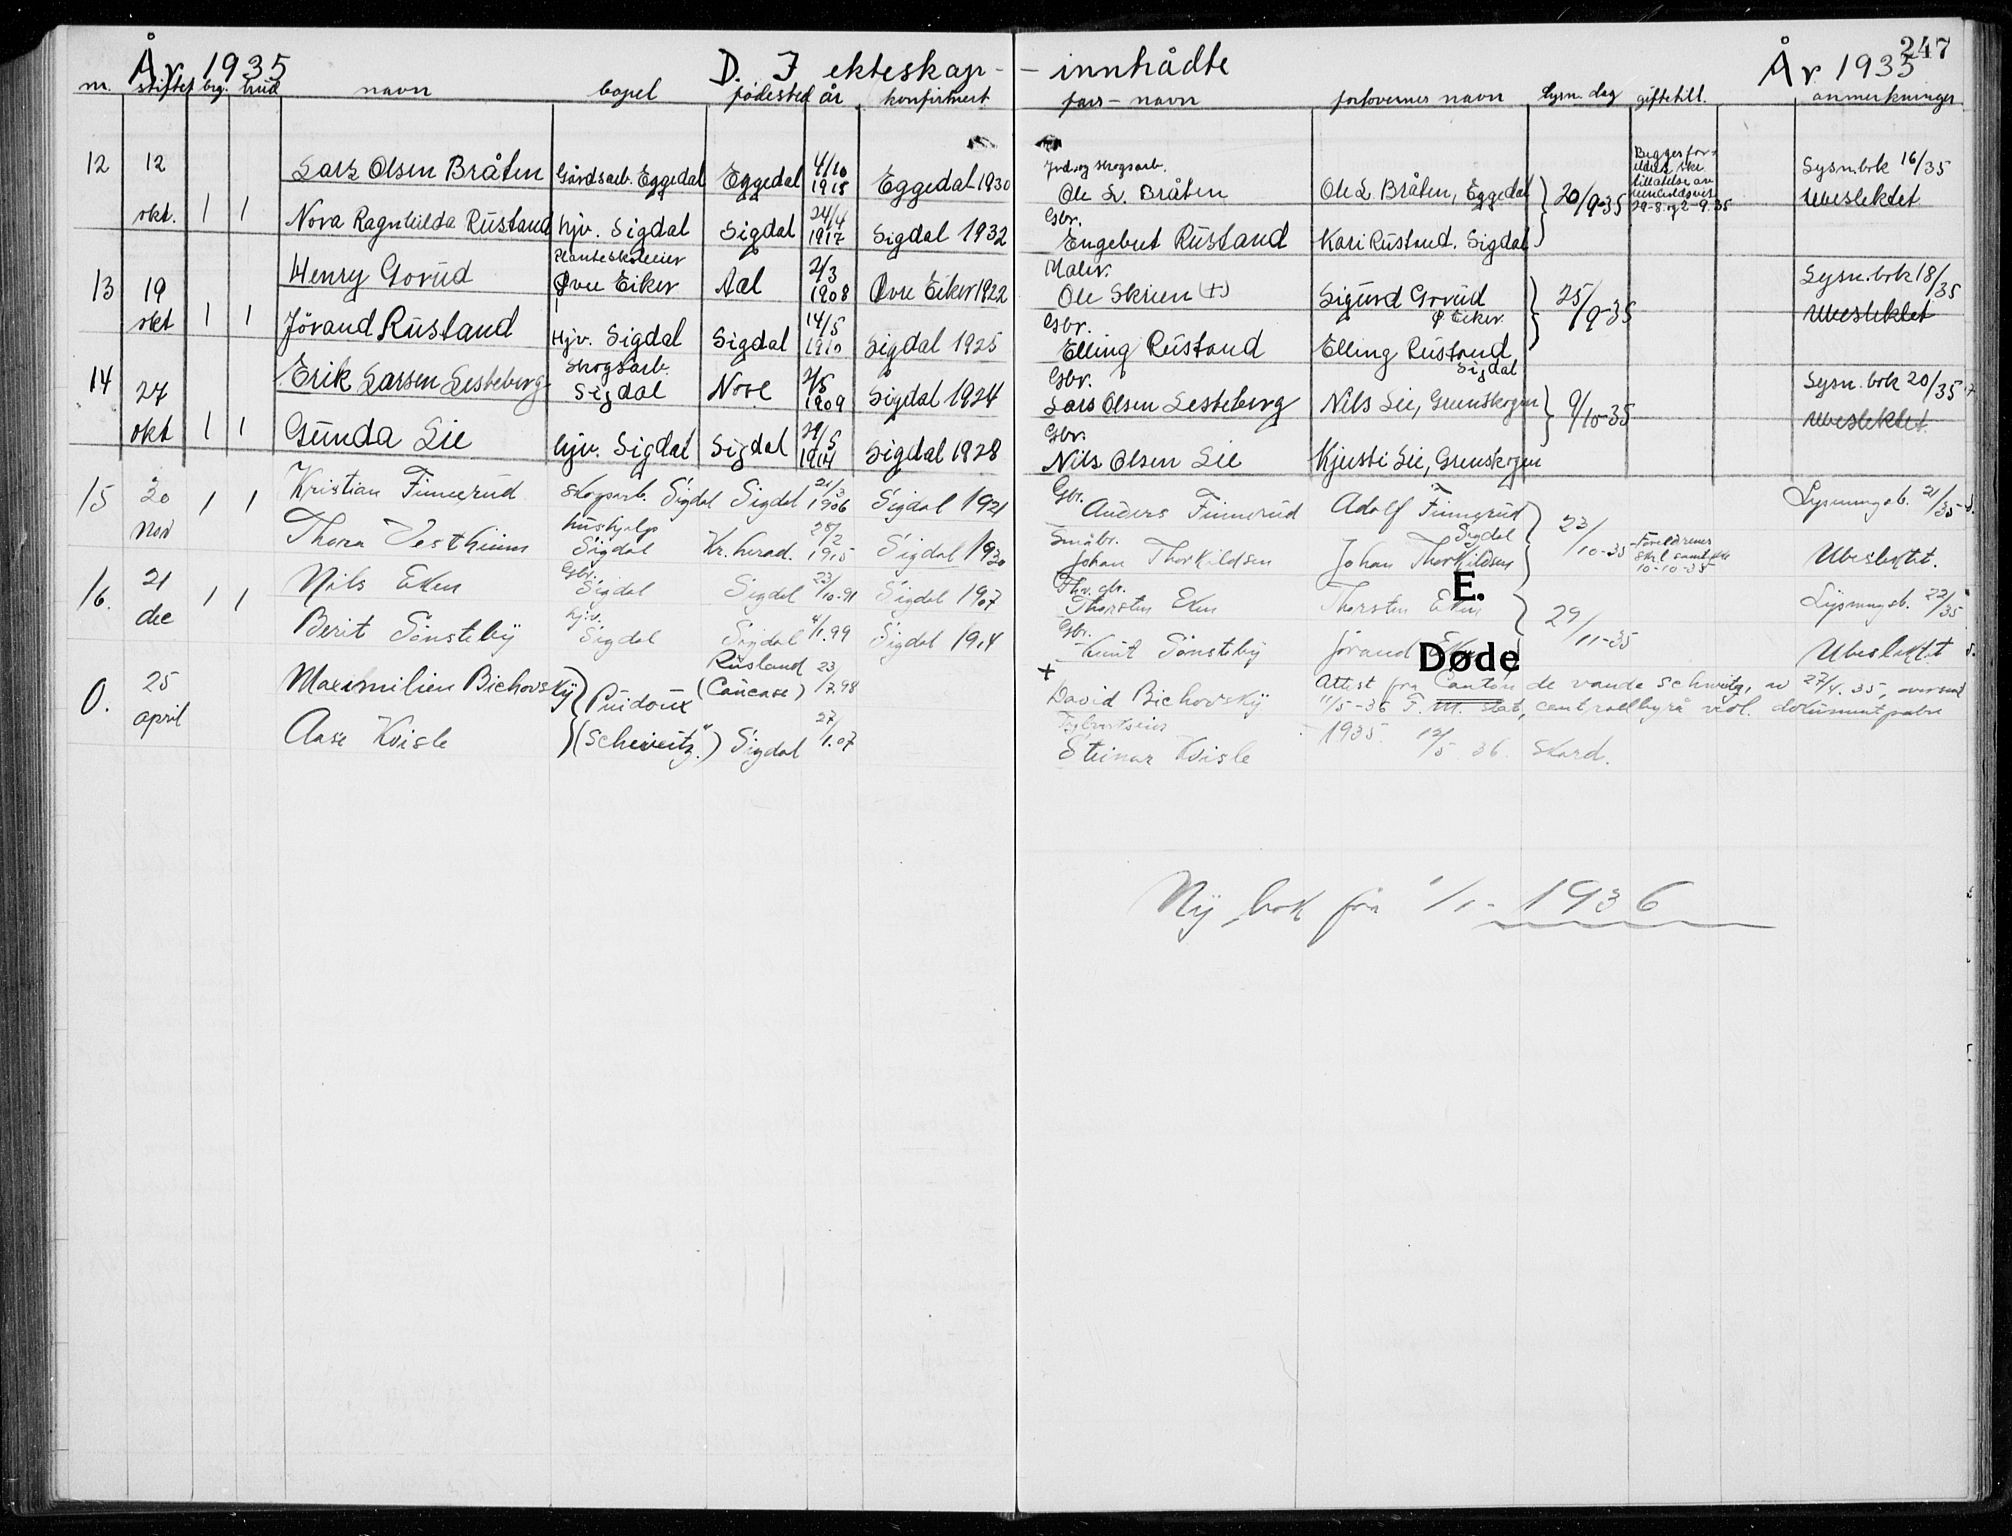 247
År 1935 D. I ekteskap- - innhådte År 1935
nr. stiftet brg. brud navn bopel fødested år konfirmert fars-navn forlovernes navn lysn. dag giftetill. anmerkninger
12 12 Lars Olsen Bråten Gårdsarb. Eggedal Eggedal 4/10 1915 Eggedal 1930 Jord og skogsarb. Ole L. Bråten Ole L. Bråten, Eggedal 20/9-35 Begges for- Lysn.bok 16/35
okt. 1 1 Nora Ragnhilda Rustand hjv. Sigdal Sigdal 24/4 1917 Sigdal 1932 Gbr. Engebret Rustand Kari Rustand, Sigdal 29-8 og 2-9.35 Ubeslektet
13 19 Henry Gorud Planteskoleeier Øvre Eiker Aal 2/3 1908 Øvre Eiker 1922 Maler. Ole Skrien (+) Sigurd Gorud Ø. Eiker 25/9-35 Lysn.bok 18/35
okt 1 1 Jörand Rustand Hjv. Sigdal Sigdal 14/5 1910 Sigdal 1925 Gbr. Elling Rustand Elling Rustand, Sigdal Ubeslektet
14 27 Erik Larsen Lesteberg Skogsarb. Sigdal Nore 2/5 1909 Sigdal 1924 Gbr. Lars Olsen Lesteberg Nils Lie, Grenskogen 9/10-35 Lysn.bok 20/35
okt 1 1 Gunda Lie hjv. Sigdal Sigdal 29/5 1914 Sigdal 1928 Gbr. Nils Olsen Lie Kjersti Lie, Grenskogen Ubeslektet.
15 20 1 1 Kristian Finnerud Skogsarb. Sigdal Sigdal 21/3 1906 Sigdal 1921 Gbr. Anders Finnerud Adolf Finnerud Sigdal 23/10-35 Lysningsb. 21/35
nov Thora Vestheim hushjelp Sigdal Kr.herad. 28/2 1915 Sigdal 1930 Småbr. Johan Thorkildsen Johan Thorkildsen Foreldrenes skrl samtykke 10-10-35 Ubeslektet.
E.
16. 21 1 1 Nils Eken Gbr. Sigdal Sigdal 23/10-91 Sigdal 1907 Fhv. gbr. Thorsten Eken Thorsten Eken 29/11-35 Lysningsb. 22/35
dec Berit Sønsteby hjv. Sigdal Sigdal 4/1.99 Sigdal 1914 Gbr. Knut Sønsteby Jørand Eken Ubeslektet
Døde
0. 25 Maximilien Bichovsky Puidoux Rusland (Caucase) 23/7.98 + David Bichovsky Attest fra Canton de vaude Schweitz, av 27/4.35, oversendt
april 11/5-36 F. M. Stat. centralbyrå vedl. dokumentpakke
Aase Kvisle (Schweitz") Sigdal 27/1.07 Steinar Kvisle 1935 12/5 36. Skard.
Ny bok fra 1/1- 1936